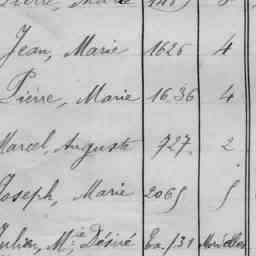 Pierre, Marie
Jean, Marie 1626 4
Pierre, Marie 1636 4
Marcel, Auguste 727. 2
Joseph, Marie 2065 5
Julien, M.ie Désiré Ex. 131